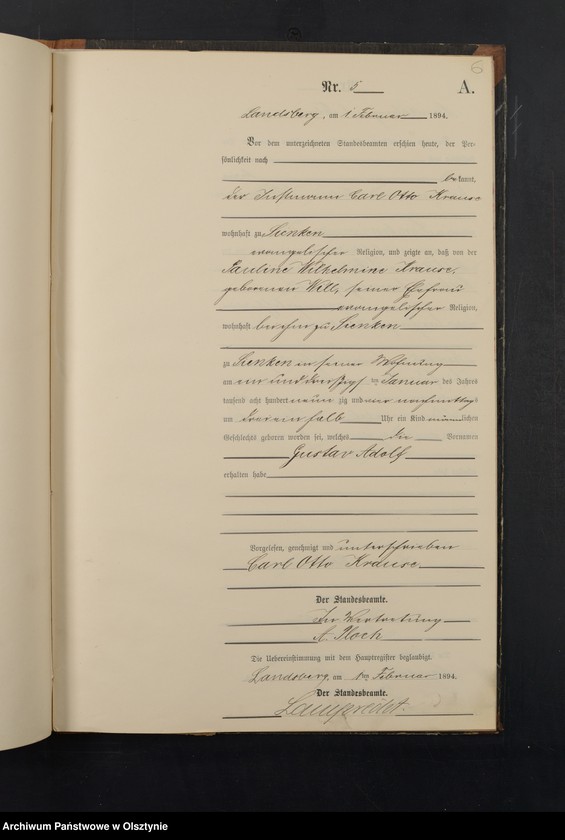 6
Nr. 5 A.
Landsberg, am 1 Februar 1894.
Vor dem unterzeichneten Standesbeamten erschien heute, der Per-
sönlichkeit nach
bekannt,
der Instmann Carl Otto Krause
wohnhaft zu
evangelischer Religion, und zeigte an, daß von der
Pauline Wilhelmine Krause,
geborenen Will, seiner Ehefrau
evangelischer Religion,
wohnhaft bei ihm zu
zu in seiner Wohnung
am ein und dreißigsten Januar des Jahres
tausend acht hundert neun zig und vier nachmittags
um halb Uhr ein Kind männlichen
Geschlechts geboren worden sei, welches die Vornamen
Gustav Adolf
erhalten habe
Vorgelesen, genehmigt und unterschrieben
Carl Otto Krause
Der Standesbeamte.
In Vertretung
A. Ploch
Die Uebereinstimmung mit dem Hauptregister beglaubigt.
Landsberg, am 1ten Februar 1894.
Der Standesbeamte.
Archiwum Państwowe w Olsztynie